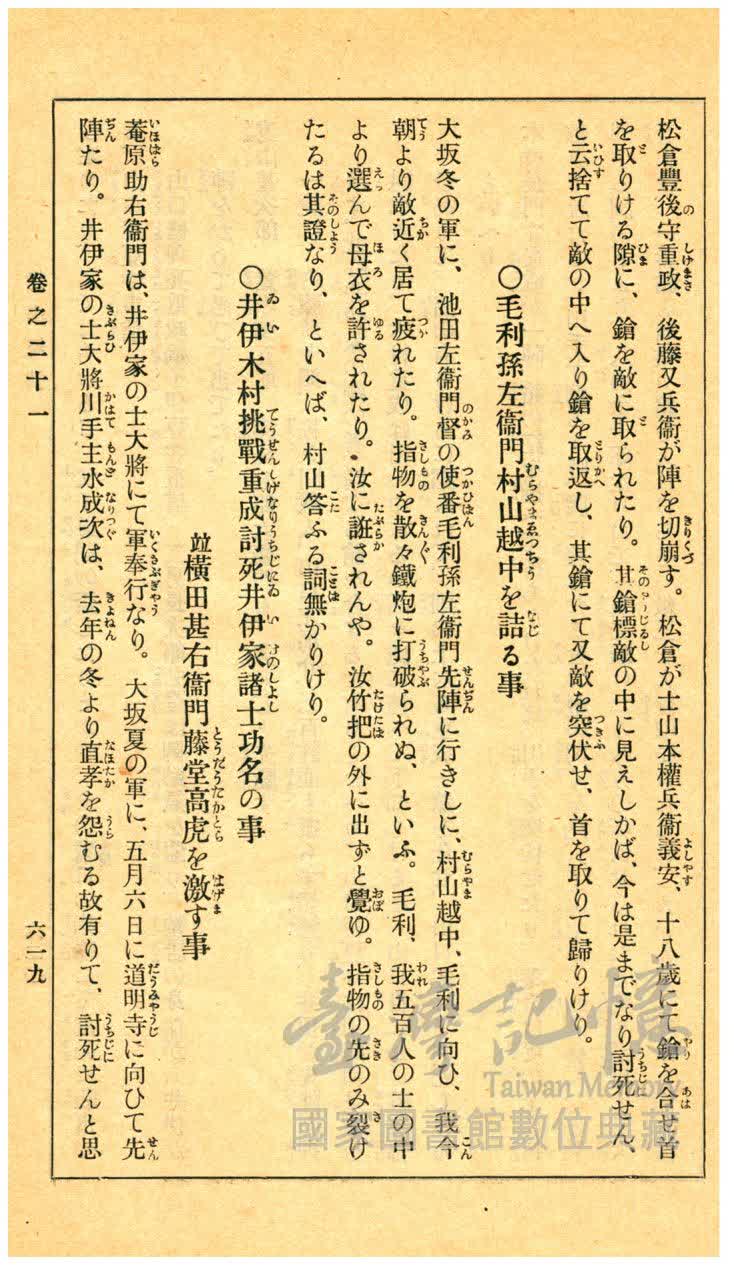 松倉豐後守重政、後藤又兵衞が陣を切崩す。松倉が士山本權兵衞義安、十八歲にて鎗を合せ首
を取りける隙に、鎗を敵に取られたり。其鎗標敵の中に見えしかば、今は是までなり討死せん、
と云捨てて敵の中へ入り鎗を取返し、其鎗にて又敵を突伏せ、首を取りて歸りけり。
○毛利孫左衞門村山越中を詰る事
大坂冬の軍に、池田左衞門督の使番毛利孫左衞門先陣に行きしに、村山越中、毛利に向ひ、我今
朝より敵近く居て疲れたり。指物を散々鐵炮に打破られぬ、といふ。毛利、我五百人の士の中
より選んで母衣を許されたり。汝に誑されんや。汝竹把の外に出ずと覺ゆ。指物の先のみ裂け
たるは其證なり、といへば、村山答ふる詞無かりけり。
○井伊木村挑戰重成討死井伊家諸士功名の事
竝橫田甚右衞門藤堂高虎を激す事
菴原助右衞門は、井伊家の士大將にて軍奉行なり。大坂夏の軍に、五月六日に道明寺に向ひて先
陣たり。井伊家の士大將川手主水成次は、去年の冬より直孝を怨むる故有りて、討死せんと思
卷之二十一
六一九
臺灣記憶
Taiwan Memory
國家圖書館數位典藏